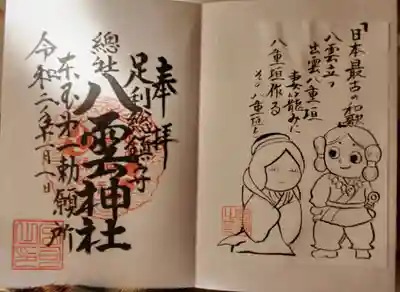 「日本最古の和歌
八雲立つ
出雲八重垣
妻籠みに
八重垣作る
その八重垣を
奉拝
足利総鎮守
總社
八雲神社
東国第一勅願所
令和二年一月